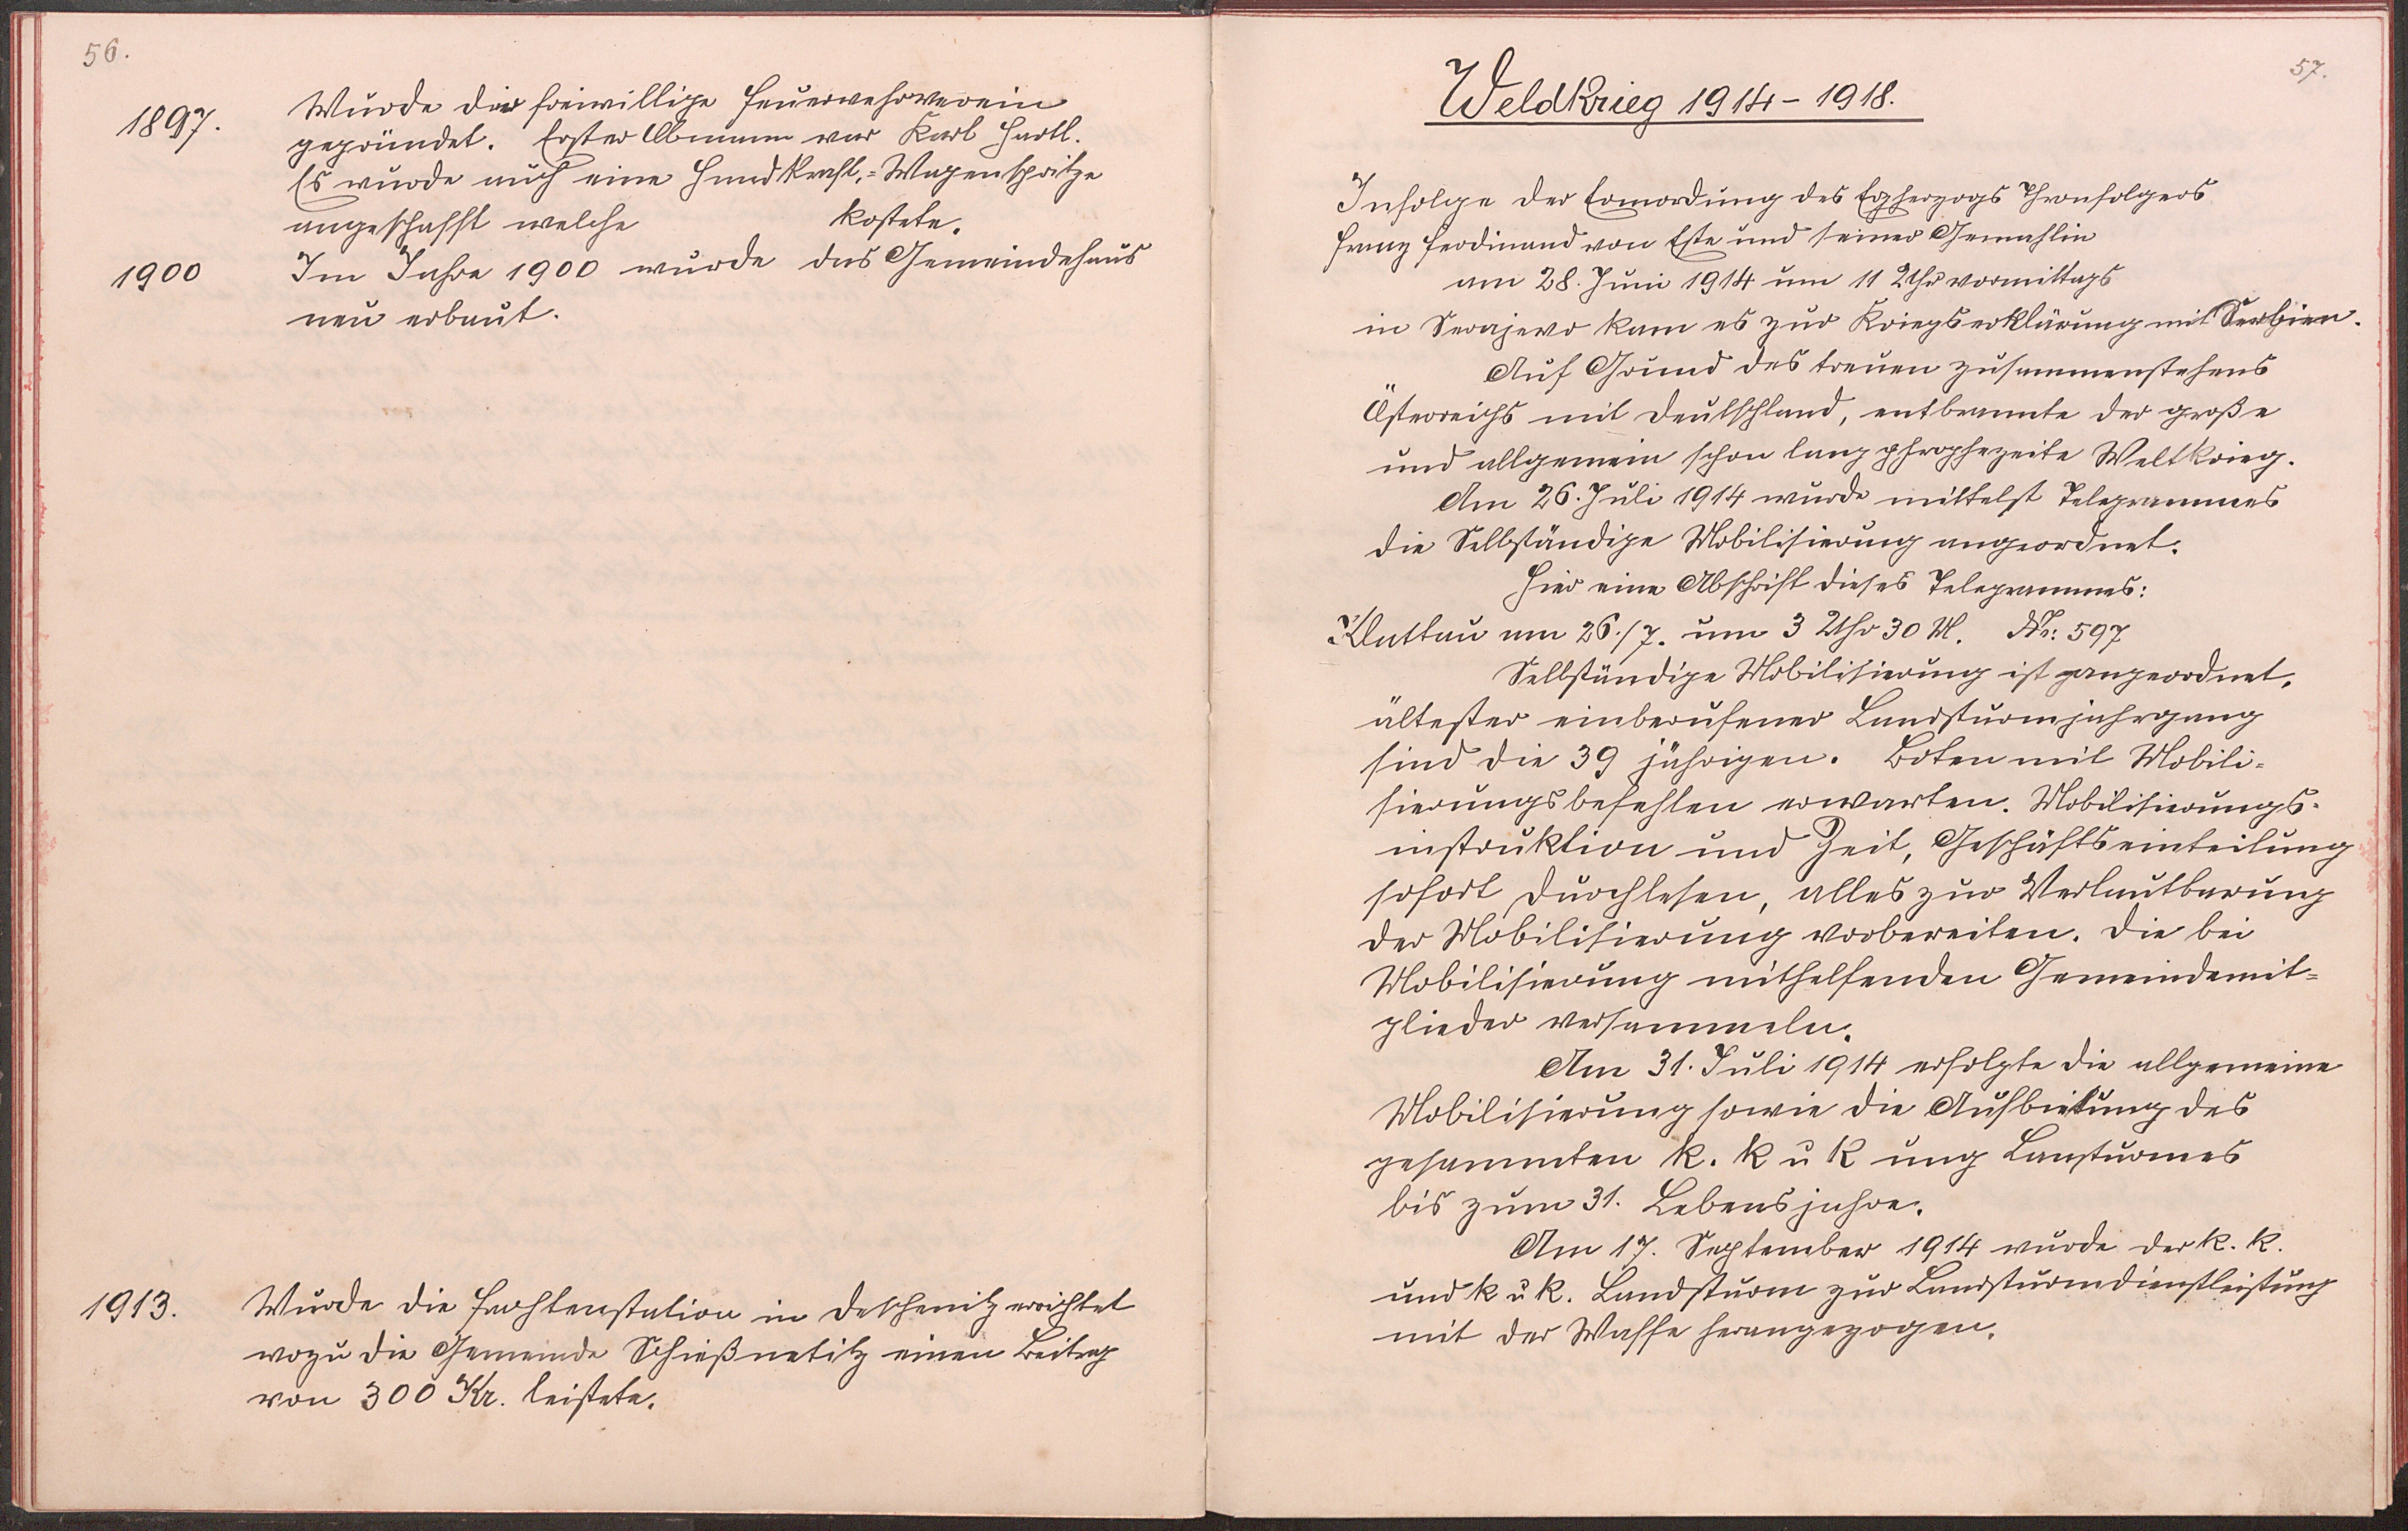 56.
1897. Wurde der freiwillige Feuerwehrverein
gegründet. Erster Obmann war Karl Hartl.
Es wurde auch eine Handkraft-Wagenspritze
angeschafft welche kostete.
1900 Im Jahre 1900 wurde das Gemeindehaus
neu erbaut.
1913. Wurde die Haltestation in Deschenitz errichtet
wozu die Gemeinde Schießnetitz einen Beitrag
von 300 Kr. leistete.
57.
Weldkrieg 1914-1918.
Infolge der Ermordung des Erzherzogs Thronfolgers
Franz Ferdinand von Este und seiner Gemahlin
am 28. Juni 1914 um 11 Uhr vormittags
in Serajevo kam es zur Kriegserklärung mit Serbien.
Auf Grund des treuen zusammenstehens
Österreichs mit Deutschland, entbrannte der große
und allgemein schon lang phrophezeite Weltkrieg.
Am 26. Juli 1914 wurde mittelst Telegrammes
die Selbständige Mobilisierung angeordnet.
Hier eine Abschrift dieses Telegrammes:
Klattau am 26./7. um 3 Uhr 30 M. Nr: 597
Selbständige Mobilisierung ist angeordnet,
ältester einberufener Landsturmjahrgang
sind die 39 jährigen. Boten mit Mobili-
sierungsbefehlen erwarten. Mobilisierungs-
instruktion und Zeit, Geschäftseinteilung
sofort durchlesen, alles zur Verlautbarung
der Mobilisierung vorbereiten. Die bei
Mobilisierung mithelfenden Gemeindemit-
glieder versammeln.
Am 31. Juli 1914 erfolgte die allgemeine
Mobilisierung sowie die Aufbietung des
gesammten k. k u k ung Lansturmes
bis zum 31. Lebensjahre.
Am 17. September 1914 wurde der k. k.
und k u k. Landsturm zur Landsturmdienstleistung
mit der Waffe herangezogen.